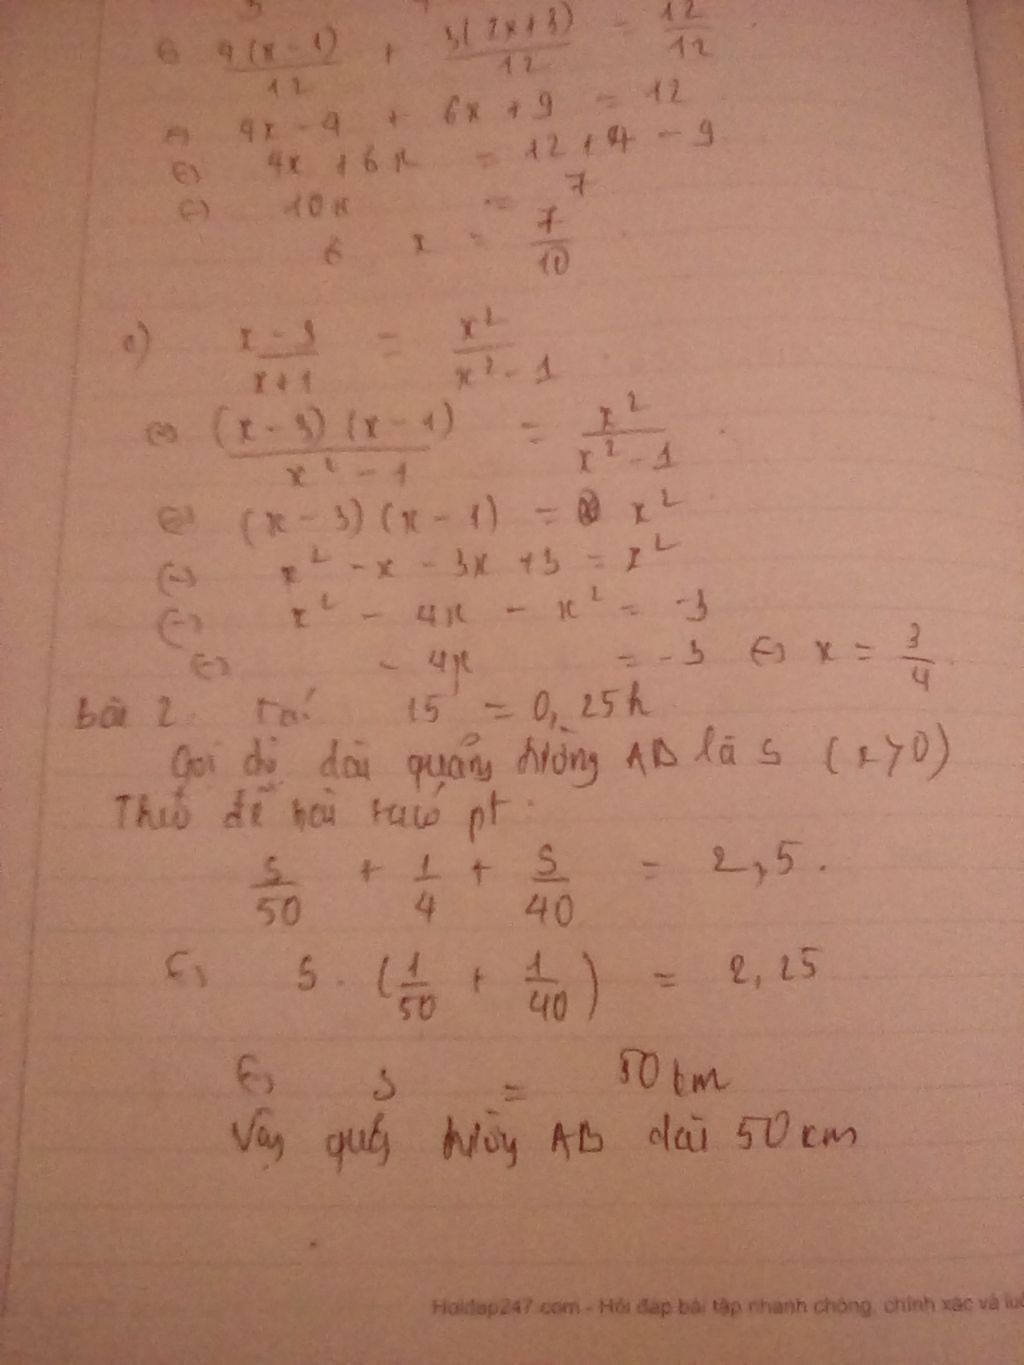 ⇔ 4(x-1)/12 + 3(2x+3)/12 = 12/12
⇔ 4x - 4 + 6x + 9 = 12
⇔ 4x + 6x = 12 + 4 - 9
⇔ 10x = 7
x = 7/10
c) x-3/x+1 = x²/x²-1
⇔ (x-3)(x-1)/x²-1 = x²/x²-1
⇔ (x-3)(x-1) = x²
⇔ x² - x - 3x + 3 = x²
⇔ x² - 4x - x² = -3
⇔ -4x = -3 ⇔ x = 3/4
bài 2 15' = 0,25h
Gọi độ dài quãng đường AB là S (x>0)
Theo đề bài ta có pt:
S/50 + 1/4 + S/40 = 2,5.
⇔ S. (1/50 + 1/40) = 2,25
⇔ S = 50 km
Vậy quãng đường AB dài 50 km
Hoidap247.com - Hỏi đáp bài tập nhanh chóng, chính xác và